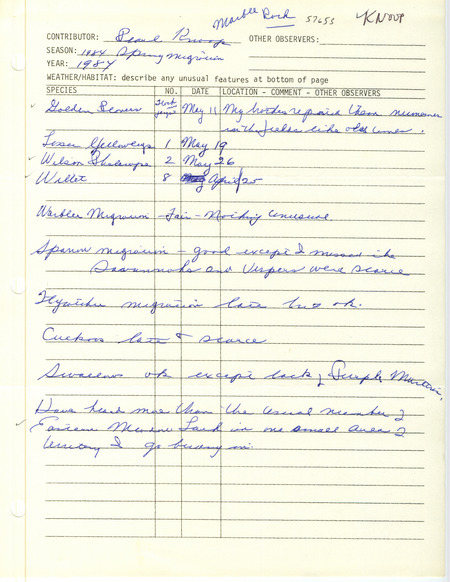 Marble Rock 57655 KNOOP
CONTRIBUTOR: Pearl Knoop OTHER OBSERVERS:
SEASON: 1984 Spring Migration
YEAR: 1984
WEATHER/HABITAT: describe any unusual features at bottom of page
SPECIES NO. DATE LOCATION - COMMENT - OTHER OBSERVERS
Golden Plover May 11 My brother reported them numerous
in the fields like old times.
Lesser Yellowlegs 1 May 19
Wilson Phalarope 2 May 26
Willet 8 April 25
Warbler Migration - Fair - Nothing unusual.
Sparrow migration - good except I missed the
Savannahs and Vespers were scarce
Flycatcher migration late but ok.
Cuckoos late & scarce
Swallows ok except lack of Purple Martin.
Have heard more than the usual number of
Eastern Meadow Lark in one small area of
territory I go birding in.